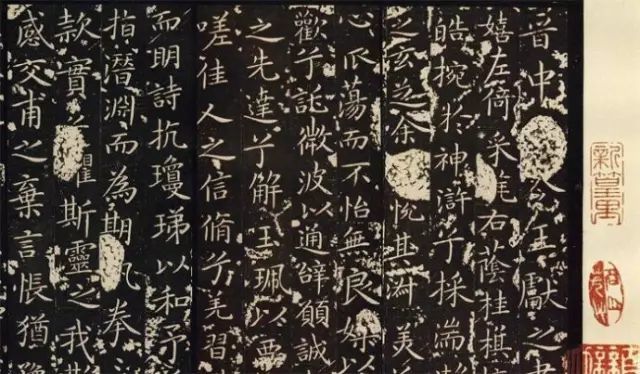 晉中令王獻之書
嬉左倚采旄右蔭桂旗
皓捥於神滸兮採湍瀨
之玄芝余悅其淑美
心振蕩而不怡無良媒
歡兮託微波以通辭願誠
之先達兮解玉珮以要
嗟佳人之信脩兮羌習
而明詩抗瓊珶以和予
指潛淵而為期執拳
款實兮懼斯靈之我欺
感交甫之棄言悵猶豫